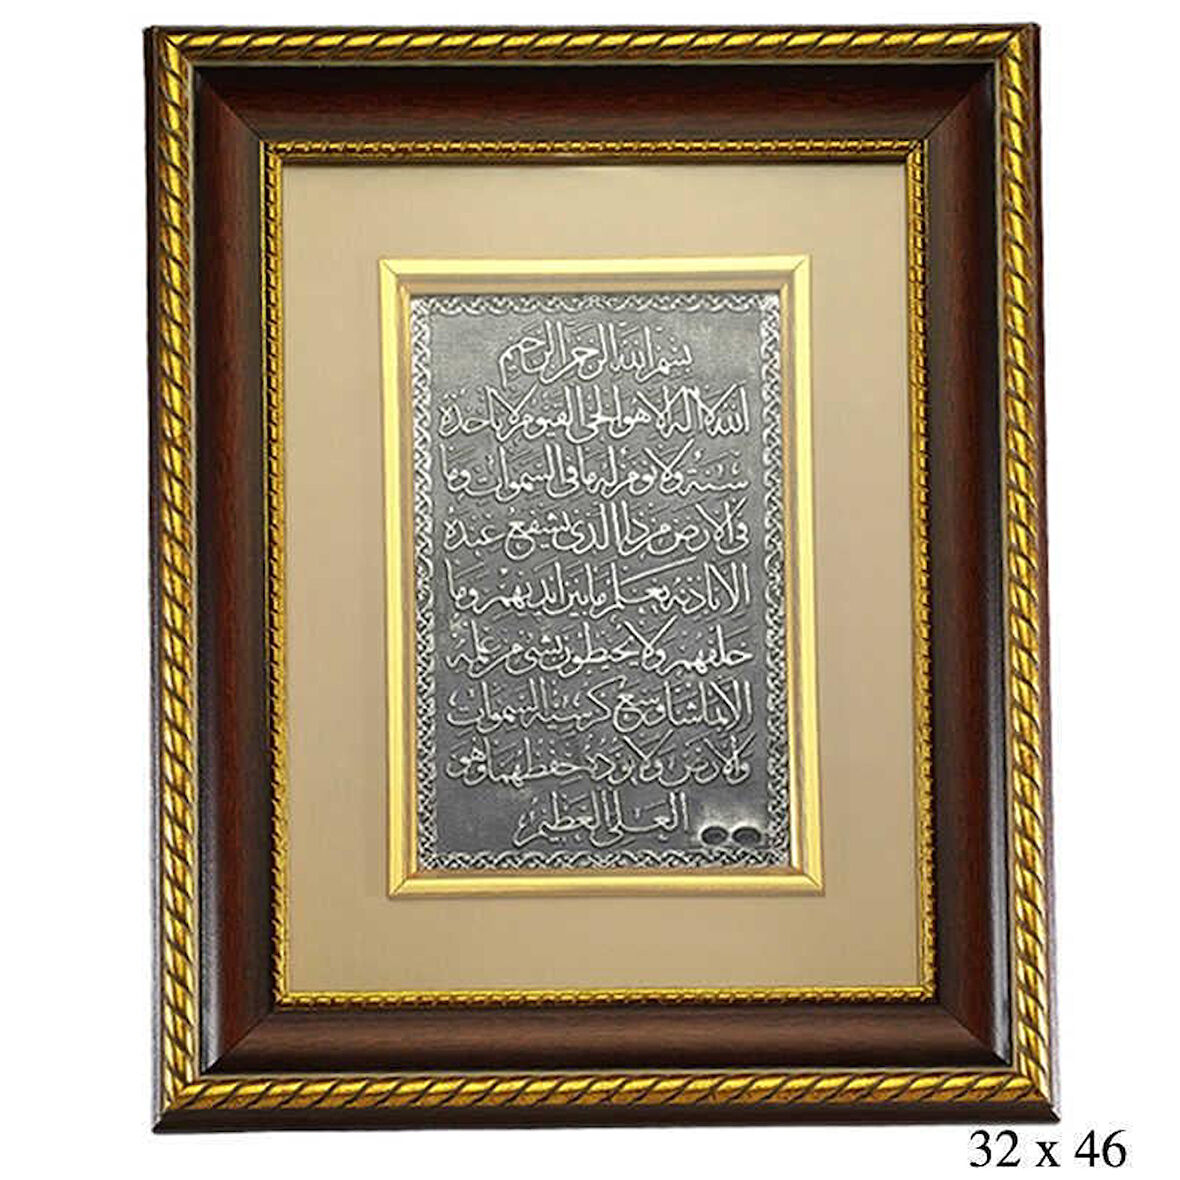 بسم الله الرحمن الرحيم
الله لا اله الا هو الحي القيوم لا تاخذه
سنة ولا نوم له ما في السموات وما
في الارض من ذا الذي يشفع عنده
الا باذنه يعلم ما بين ايديهم وما
خلفهم ولا يحيطون بشئ من علمه
الا بما شا وسع كرسيه السموات
والارض ولا يؤده حفظهما وهو
العلي العظيم
32 x 46